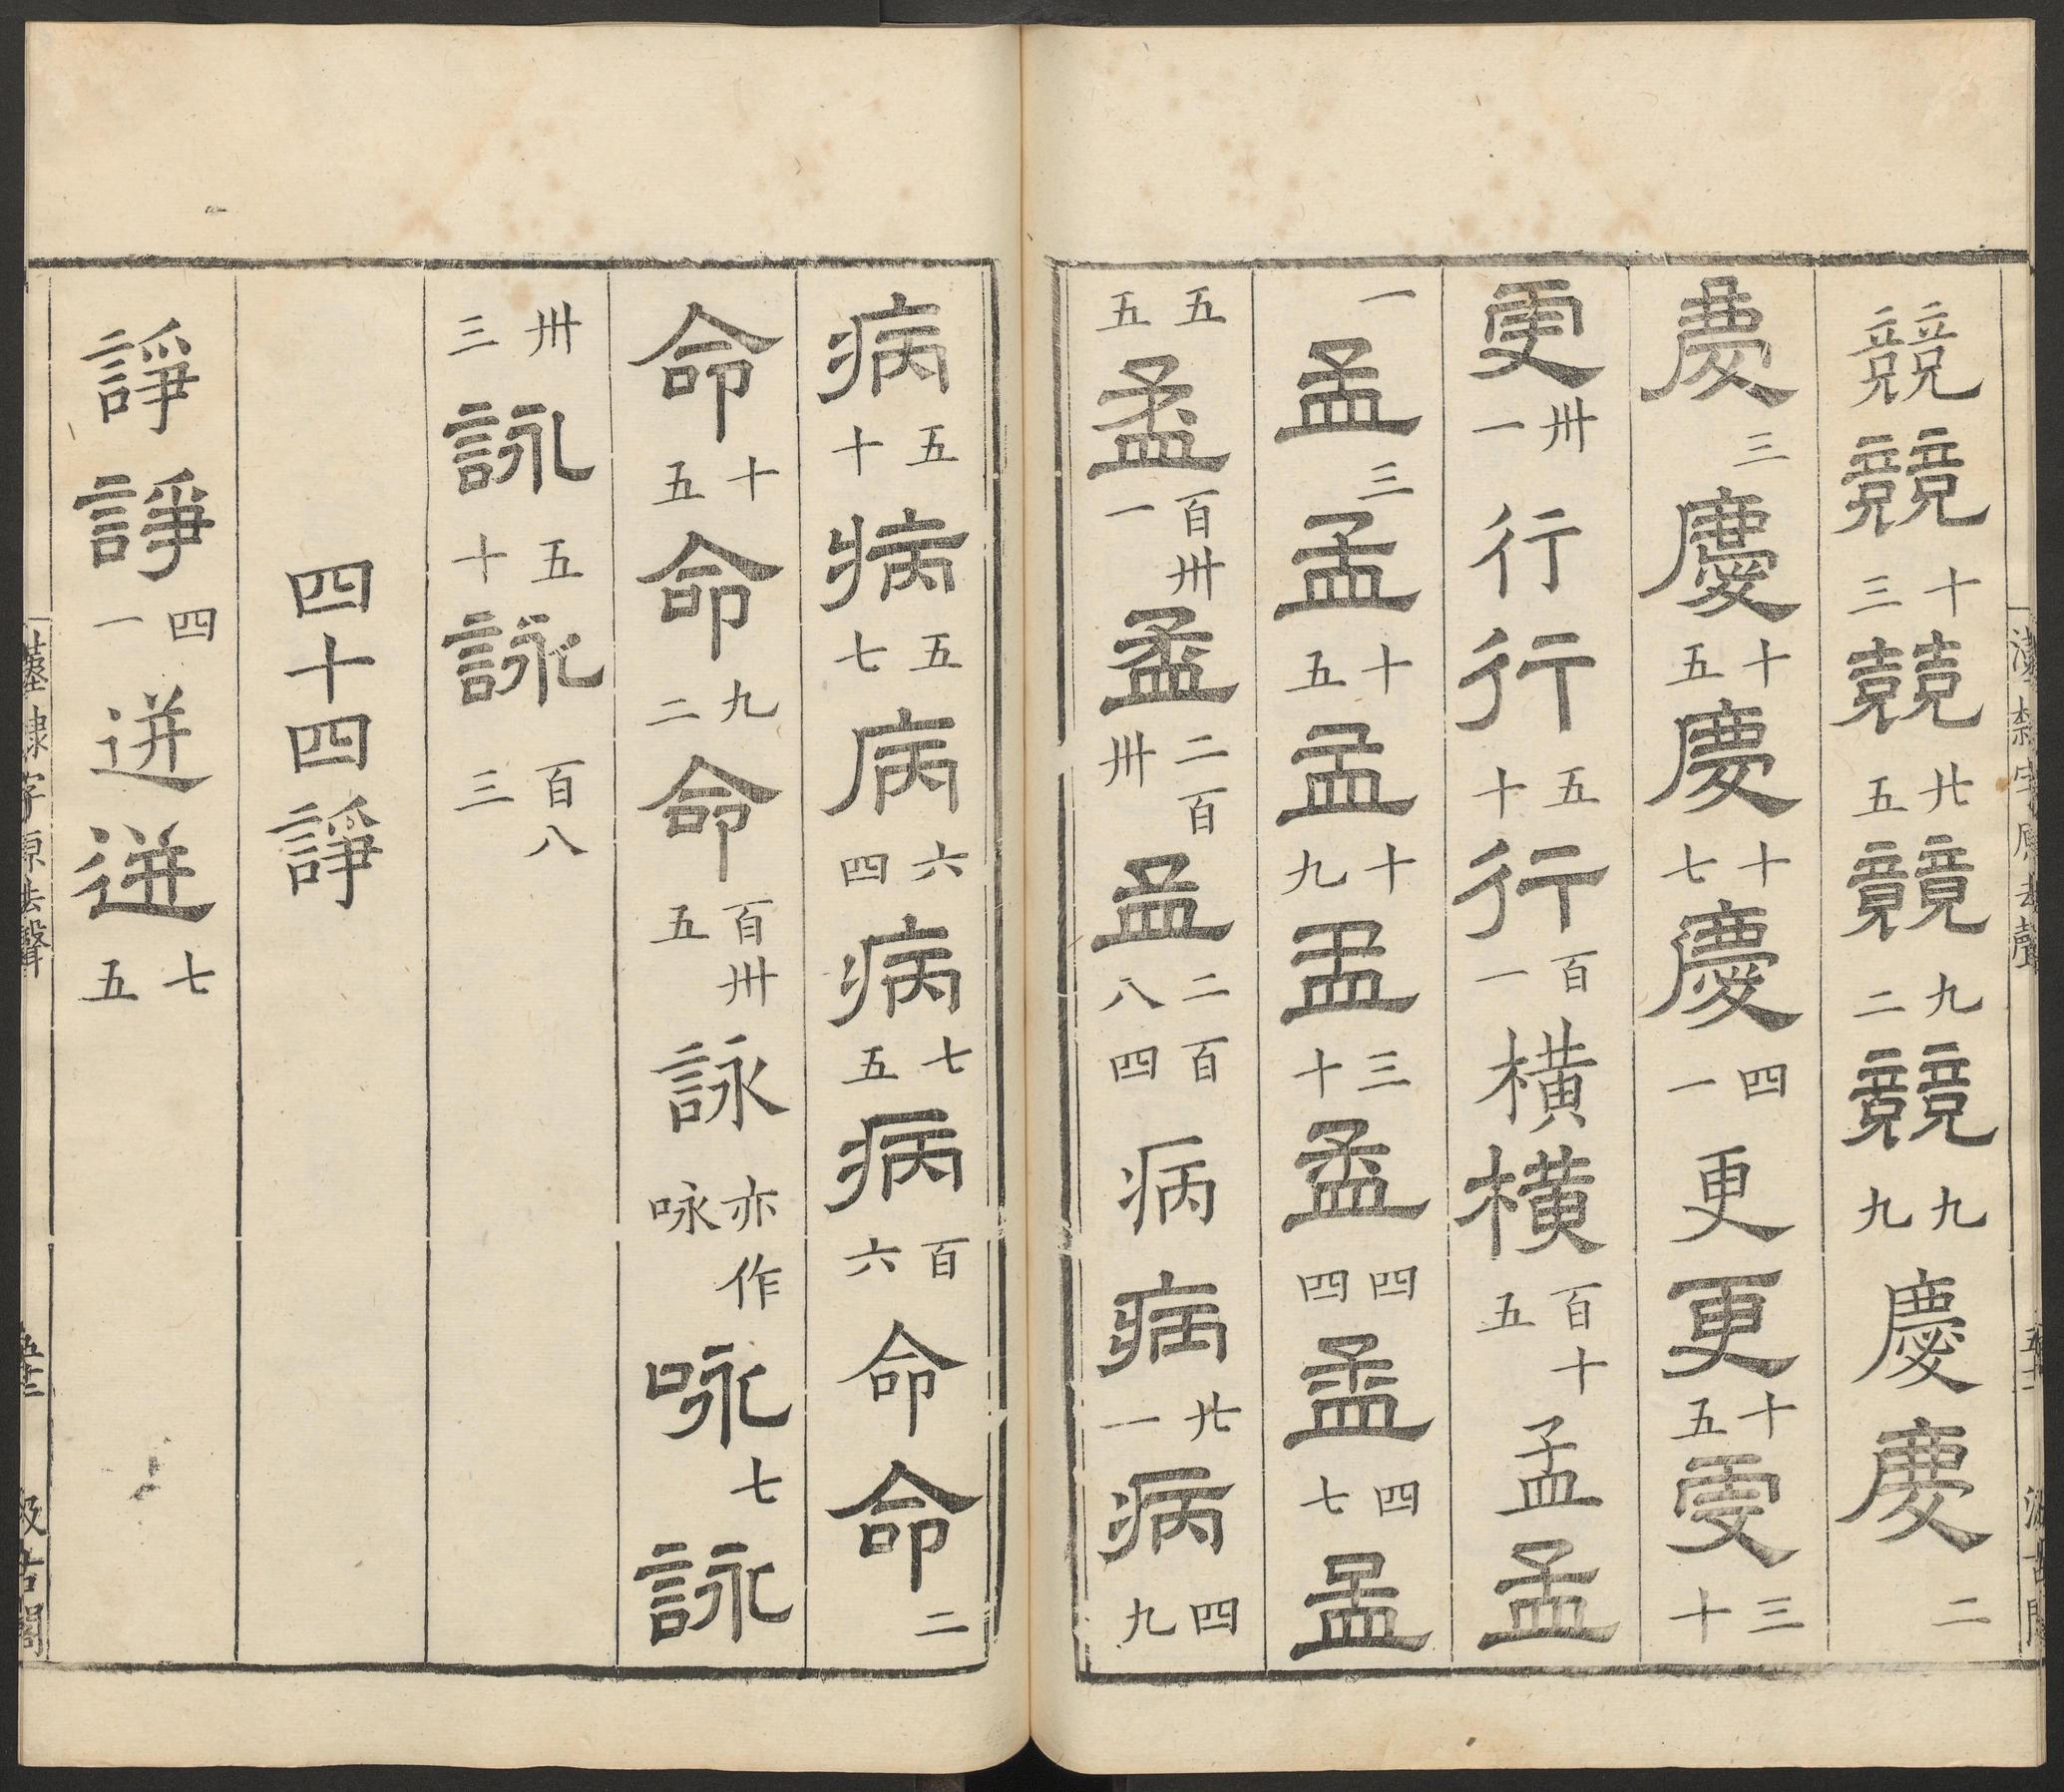 競競十三競廿五競九二競九九慶慶二
慶三慶十五慶十七慶四一更更十五更三十
更卅一行行五十行百一橫橫百十五孟孟
一孟三孟十五孟十九孟三十孟四四孟四七孟
五五孟百卅一孟二百卅孟二百八四病病廿一病四九
病五十病五七病六四病七五病百六命命二
命十五命九二命百卅五詠亦作咏咏七詠
卅三詠五十詠百八三
四十四諍
諍諍四一迸迸七五
漢隸字原去聲
汲古閣